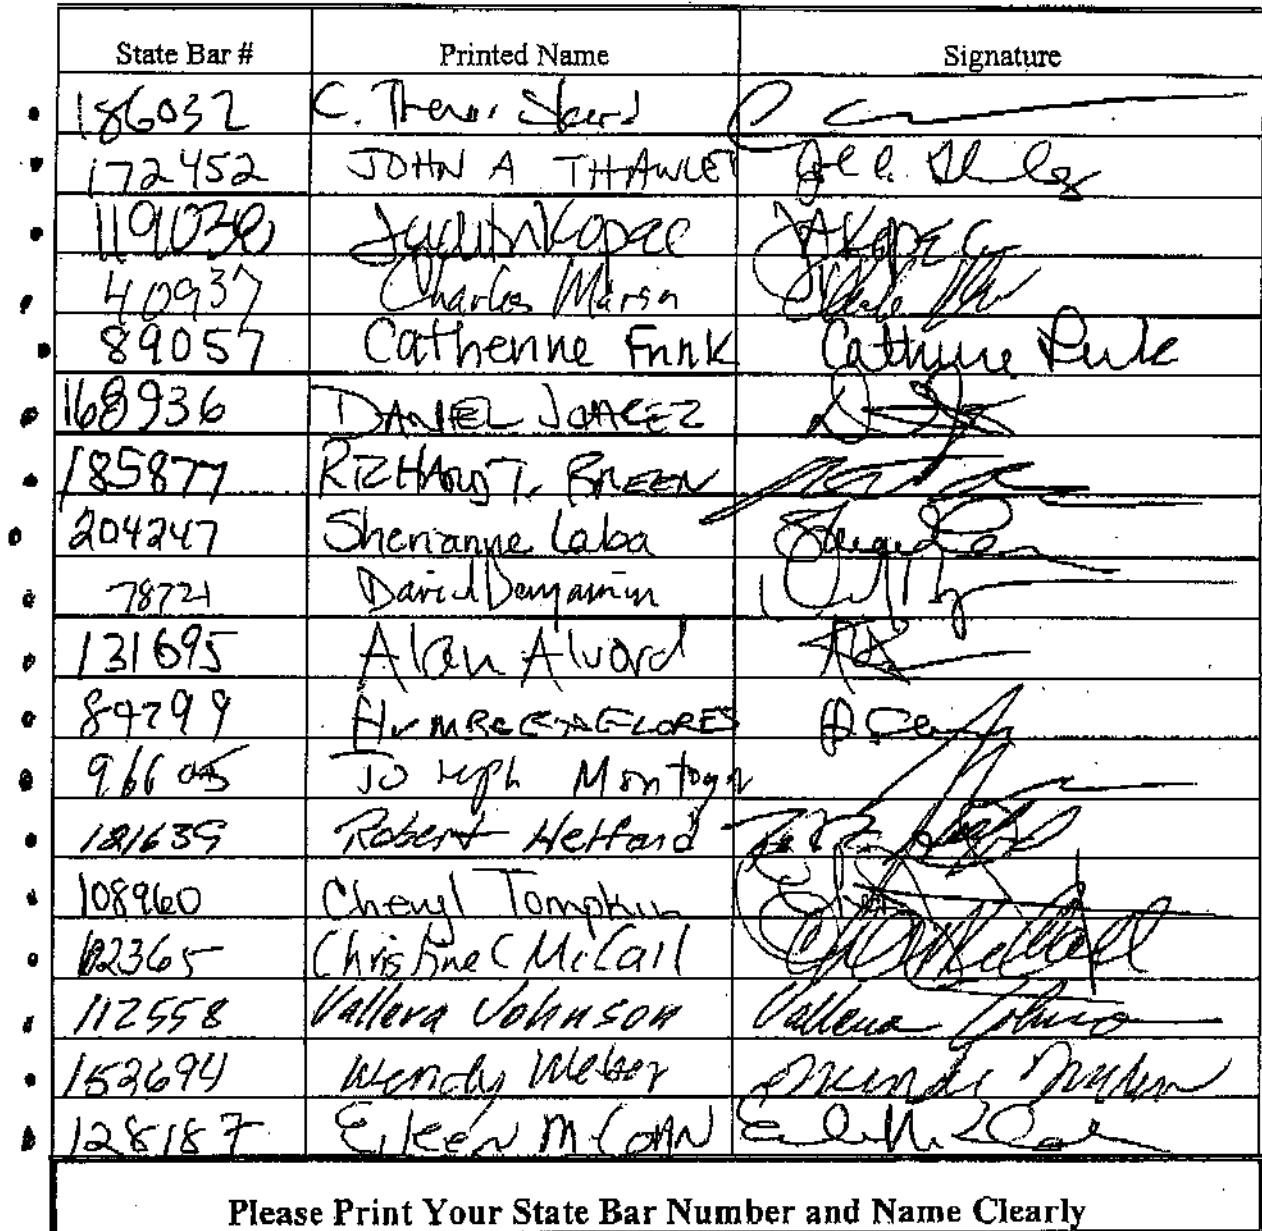 State Bar # Printed Name Signature
186032 C. Trevor Skard
172452 JOHN A THAWLEY
119030 Judith Kopec JA Kopec
40937 Charles Marson
89057 Catherine Frink Catherine Frink
168936 DANIEL JUAREZ
185877 RICHARD T. BREEN
204247 Sherianne Laba
78721 David Benjamin
131695 Alan Alvord
84299 FLORES
96605 Joseph Montoya
121639 Robert Helfand
108960 Cheryl Tompkin
102365 Christine C McCall
112558 Vallera Johnson Vallera Johnson
152694 Wendy Weber
128187 Eileen McCONN
Please Print Your State Bar Number and Name Clearly